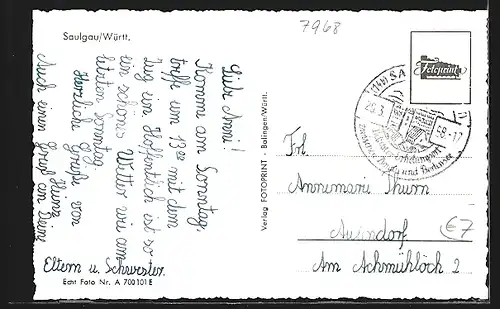 7968
Saulgau/Württ.
Liebe Anni!
Komme am Sonntag,
treffe um 13 00 mit dem
Zug ein. Hoffentlich ist so
ein schönes Wetter wie am
letzten Sonntag.
Herzliche Grüße von
Heinz
Auch einen Gruß an Deine
Eltern u. Schwester.
Echt Foto Nr. A 700101 E
Verlag FOTOPRINT · Balingen/Württ.
Fotoprint
(14b) SA
und
Frl.
Annemarie Thurn
Aulendorf
€7
Am Achmühlöch 2